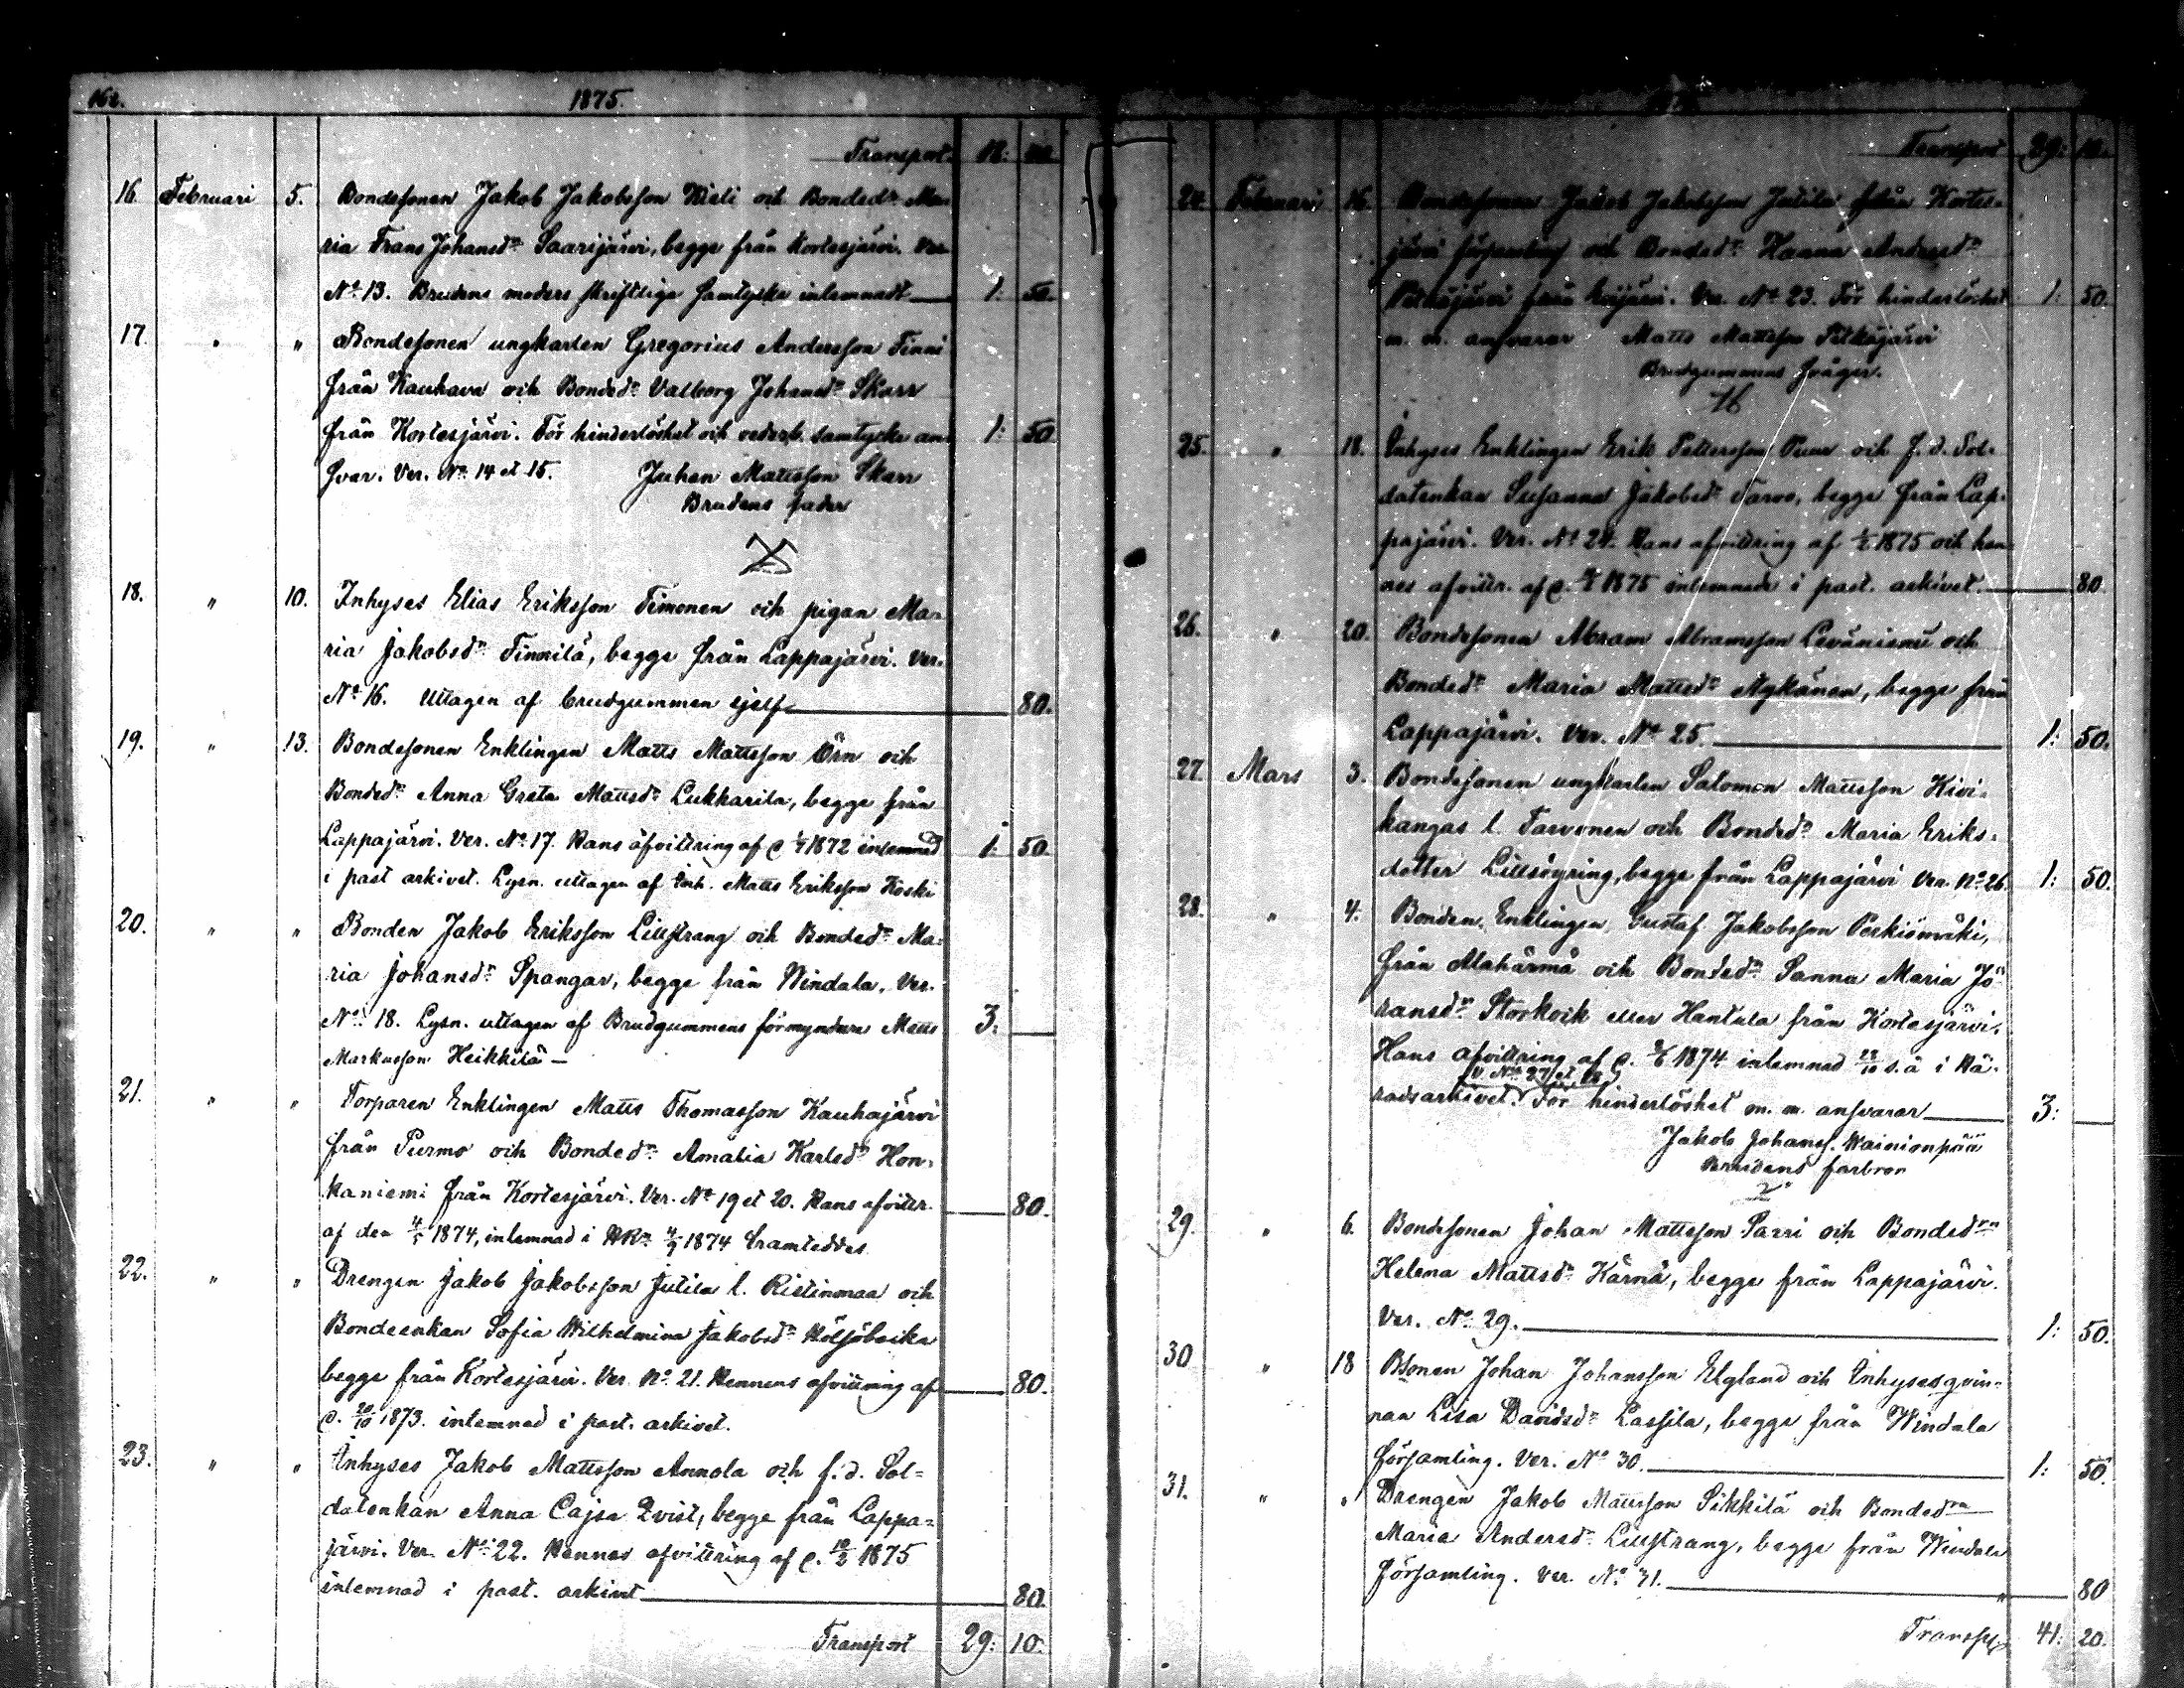 1875.
Transport
16. Februari 5. Bondesonen Jakob Jakobsson och Bonded:r Ma-
ria Frans Johansd:r Saarijärvi, begge från Kortesjärvi. Ver.
N:o 13. Brudens moders skriftliga samtycke inlemnadt 1: 50.
17. " " Bondesonen ungkarlen Gregorius Andersson Finni
från Kauhava och Bonded:r Valborg Johansd:r Skarr
från Kortesjärvi. För hinderlöshet och vederb. samtycke an- 1: 50
svar. Ver. N:o 14 et 15. Juhan Mattsson Skarr
Brudens fader
18. " 10. Inhyses Elias Eriksson Timonen och pigan Ma-
ria Jakobsd:r Finnilä, begge från Lappajärvi. Ver.
N:o 16. Uttagen af brudgummen sjelf 80.
19. " 13. Bondesonen Enklingen Matts Mattsson Örn och
Bonded:r Anna Greta Mattsd:r Lukkarila, begge från
Lappajärvi. Ver. N:o 17. Hans afvittring af d. 1872 inlemnad 1: 50.
i past arkivet. Lysn. uttagen af Inh. Matts Eriksson Koski
20. " " Bonden Jakob Eriksson Lillstrang och Bonded:r Ma-
ria Johansd:r Spangar, begge från Windala. Ver.
N:o 18. Lysn. uttagen af Brudgummens förmyndare Matts 3:
Markusson Heikkilä
21. " " Torparen Enklingen Matts Thomasson Kauhajärvi
från Purmo och Bonded:r Amalia Karlsd:r Hon-
kaniemi från Kortesjärvi. Ver. N:o 19 et 20. Hans afvittr. 80.
af den 1874, inlemnad i 1874 framteddes
22. " " Drengen Jakob Jakobsson Jutila l. Ristinmaa och
Bondeenkan Sofia Wilhelmina Jakobsd:r
begge från Kortesjärvi. Ver. N:o 21. Hennes afvittring af 80.
d. 20/10 1873. inlemnad i past. arkivet.
23. " " Inhyses Jakob Mattsson Annola och f.d. Sol-
datenkan Anna Cajsa Qvist, begge från Lappa-
järvi. Ver N:o 22. Hennes afvittring af d. 1875
inlemnad i past. arkivet 80.
Transport 29: 10.
Transport 29: 10.
24. Februari 16. Bondesonen Jakob Jakobsson Jutila från Kortes-
järvi församling och Bonded:r Hanna Andersd:r
Pitkäjärvi från Evijärvi. Ver. N:o 23. För hinderlöshet 1: 50.
m. m. ansvarar Matts Mattsson Pitkäjärvi
Brudgummens svåger.
25. " 18. Inhyses Enklingen Erik Pettersson och f. d. Sol-
datenkan Susanna Jakobsd:r Tarvo, begge från Lap-
pajärvi. Ver. N:o 24. Hans afvittring af 1875 och hen-
nes afvittr. af d. 1875 inlemnade i past. arkivet. 80.
26. " 20. Bondesonen Abram Abramsson Leväniemi och
Bonded:r Maria Mattsd:r Nykänen, begge från
Lappajärvi. Ver. N:o 25. 1: 50.
27. Mars 3. Bondesonen ungkarlen Salomon Mattsson Kivi-
kangas l. Tarvonen och Bonded:r Maria Eriks-
dotter Lillsöyring, begge från Lappajärvi Ver. N:o 26. 1: 50.
28. " 4. Bonden, Enklingen, Gustaf Jakobsson Perkiömäki,
från Alahärmä och Bonded:n Sanna Maria Jö-
ransd:r Storkoik eller Hantula från Kortesjärvi.
Hans afvittring af d. 1874 inlemnad s.å i Hä-
V. N:o 27 et 28
radsarkivet. För hinderlöshet m. m. ansvarar 3:
Jakob Johanss. Wainionpää
Brudens farbror
29. " 6. Bondesonen Johan Mattsson Sarri och Bonded:rn
Helena Mattsd:r Kärnä, begge från Lappajärvi.
Ver. N:o 29. 1: 50.
30 " 18 Bsonen Johan Johansson Elgland och Inhysesqvin-
nan Lisa Davidsd:r Lassila, begge från Windala
församling. Ver. N:o 30. 1: 50
31. " " Drengen Jakob Mattsson Sikkilä och Bonded:rn
Maria Andersd:r Lillstrang, begge från Windala
församling. Ver. N:o 31. 80
Transp. 41: 20.